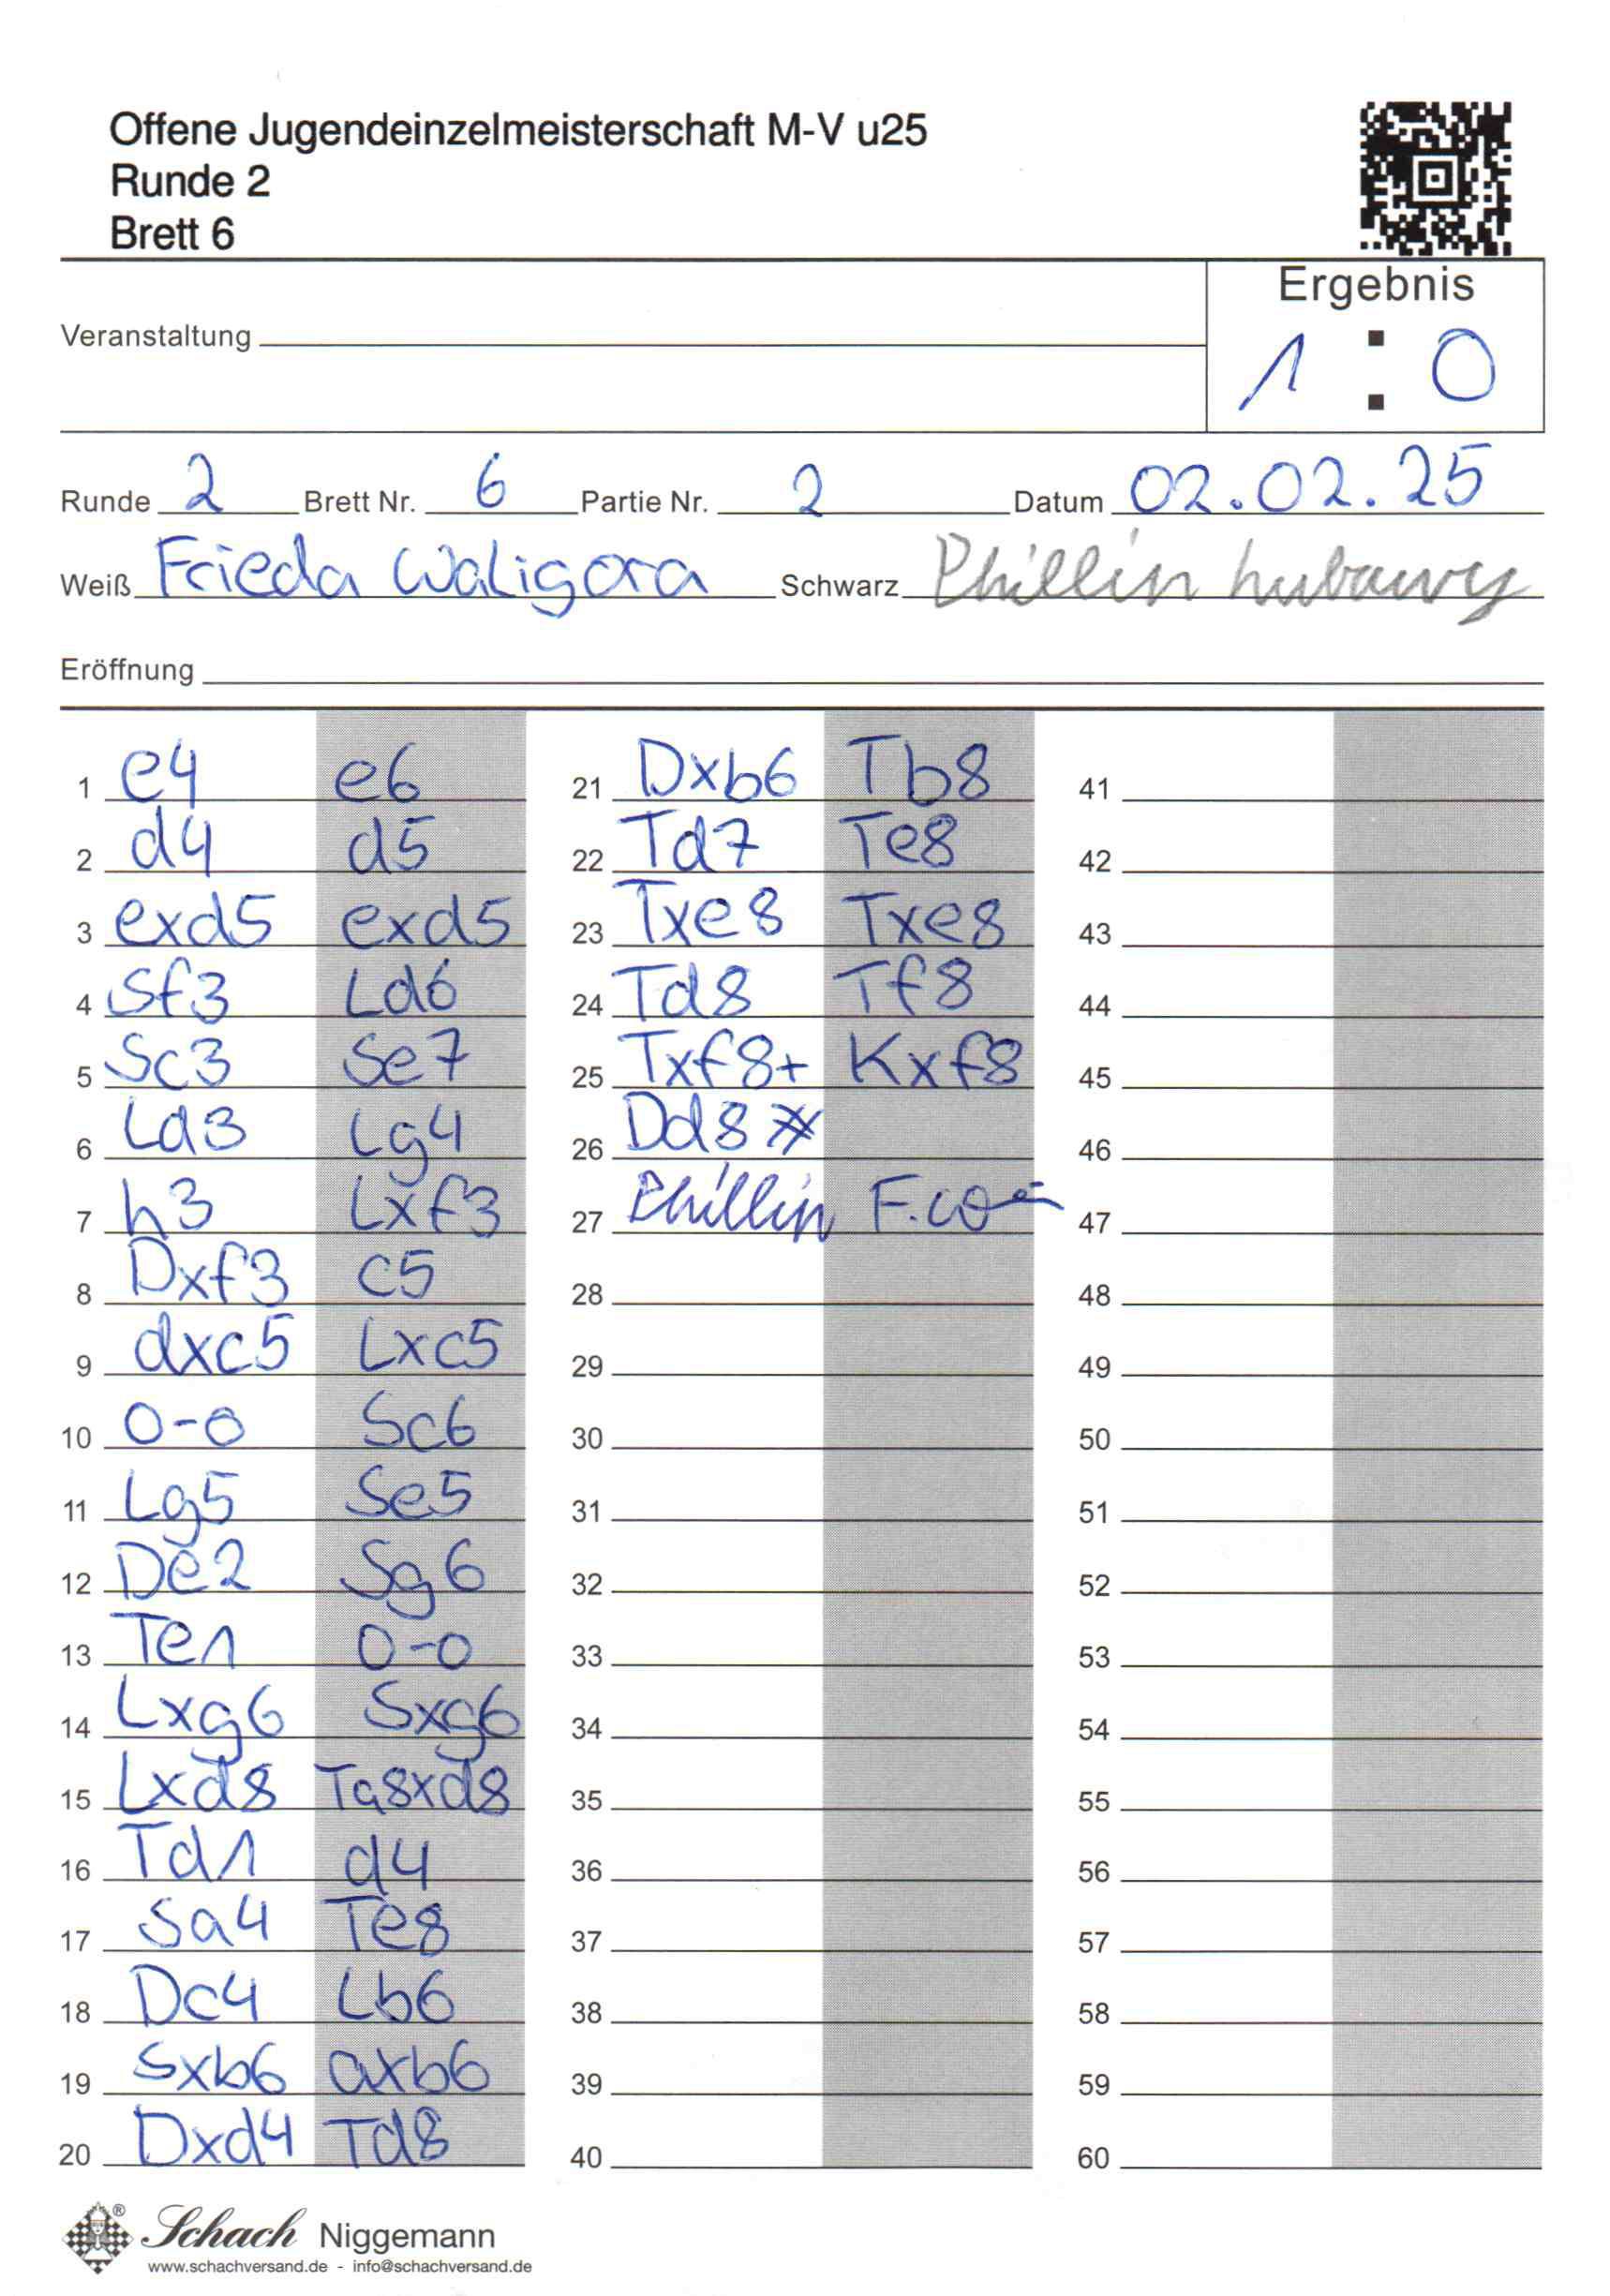 Offene Jugendeinzelmeisterschaft M-V u25
Runde 2
Brett 6
Ergebnis
Veranstaltung
1 : 0
Runde 2 Brett Nr. 6 Partie Nr. 2 Datum 02.02.25
Weiß Frieda Waligora Schwarz Phillin
Eröffnung
1 e4 e6
2 d4 d5
3 exd5 exd5
4 Sf3 Ld6
5 Sc3 Se7
6 Ld3 Lg4
7 h3 Lxf3
8 Dxf3 c5
9 dxc5 Lxc5
10 0-0 Sc6
11 Lg5 Se5
12 De2 Sg6
13 Te1 0-0
14 Lxg6 Sxg6
15 Lxd8 Ta8xd8
16 Td1 d4
17 Sa4 Te8
18 Dc4 Lb6
19 Sxb6 axb6
20 Dxd4 Td8
21 Dxb6 Tb8
22 Td7 Te8
23 Txe8 Txe8
24 Td8 Tf8
25 Txf8+ Kxf8
26 Dd8#
27 Phillin
28
29
30
31
32
33
34
35
36
37
38
39
40
41
42
43
44
45
46
47
48
49
50
51
52
53
54
55
56
57
58
59
60
® Schach Niggemann
www.schachversand.de - info@schachversand.de